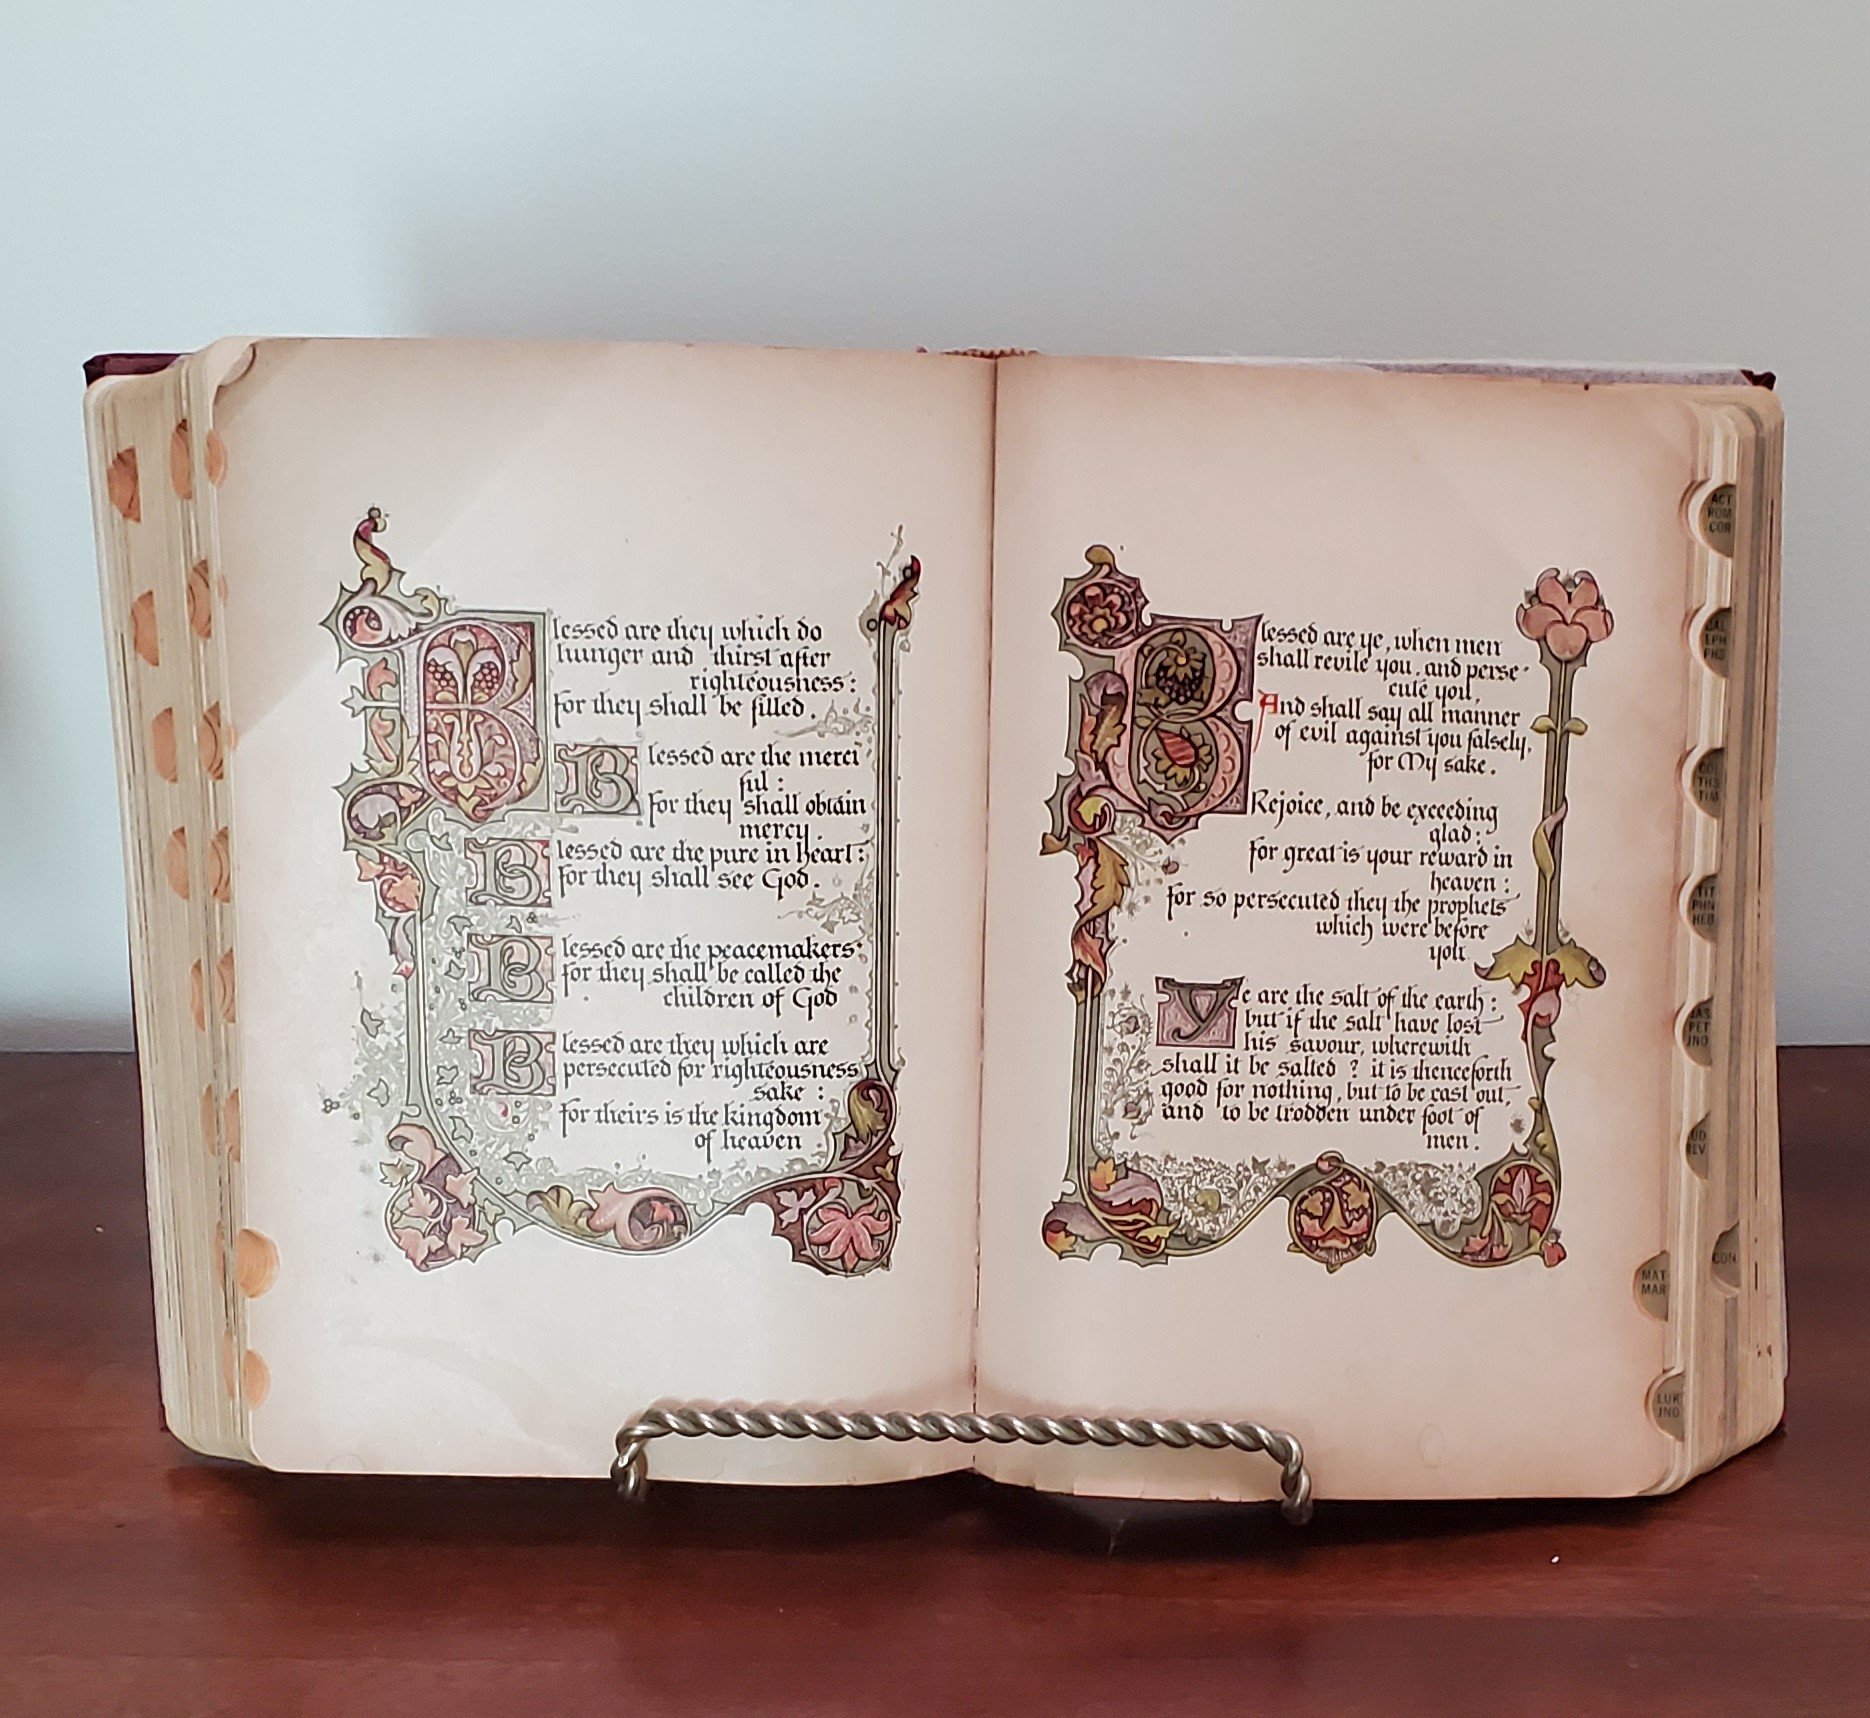 Blessed are they which do
hunger and thirst after
righteousness:
For they shall be filled.
Blessed are the merci-
ful:
For they shall obtain
mercy.
Blessed are the pure in heart:
For they shall see God.
Blessed are the peacemakers:
for they shall be called the
children of God
Blessed are they which are
persecuted for righteousness
sake:
for theirs is the kingdom
of heaven.
Blessed are ye, when men
shall revile you, and perse-
cute you,
And shall say all manner
of evil against you falsely,
for My sake.
Rejoice, and be exceeding
glad:
for great is your reward in
heaven:
for so persecuted they the prophets
which were before
you
Ye are the salt of the earth:
but if the salt have lost
his savour, wherewith
shall it be salted? it is thenceforth
good for nothing, but to be cast out,
and to be trodden under foot of
men.
ACT
ROM
COR
EPH
PHS
COL
THS
TIM
TIT
PHN
HEB
JAS
PET
JNO
REV
CON
MAT
MAR
LUK
JNO